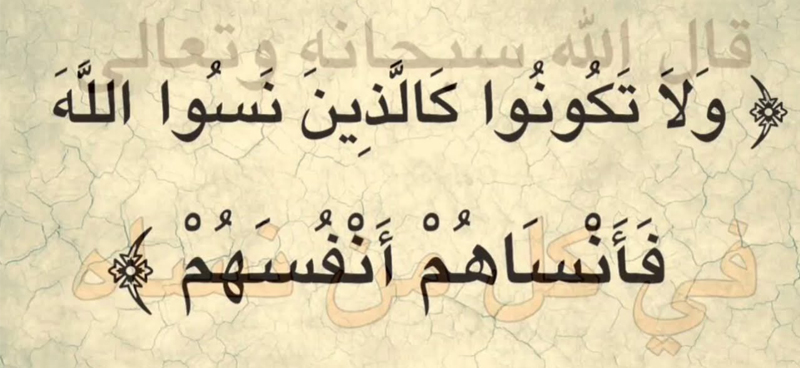 قال الله سبحانه وتعالى
﴿ وَلاَ تَكُونُوا كَالَّذِينَ نَسُوا اللَّهَ
في كل من نساه
فَأَنْسَاهُمْ أَنْفُسَهُمْ ﴾